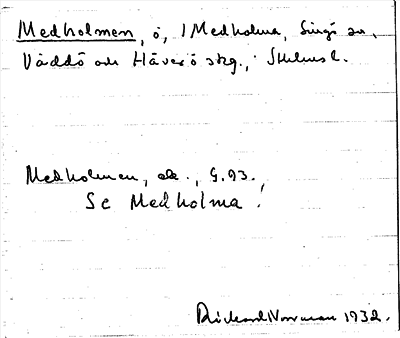 Medholmen, ö, i Medholma, Singö sn,
Väddö och Häverö skg., Sthlms l.
Medholmen, ek., G.93.,
Se Medholma.
Rickard Norrman 1932.